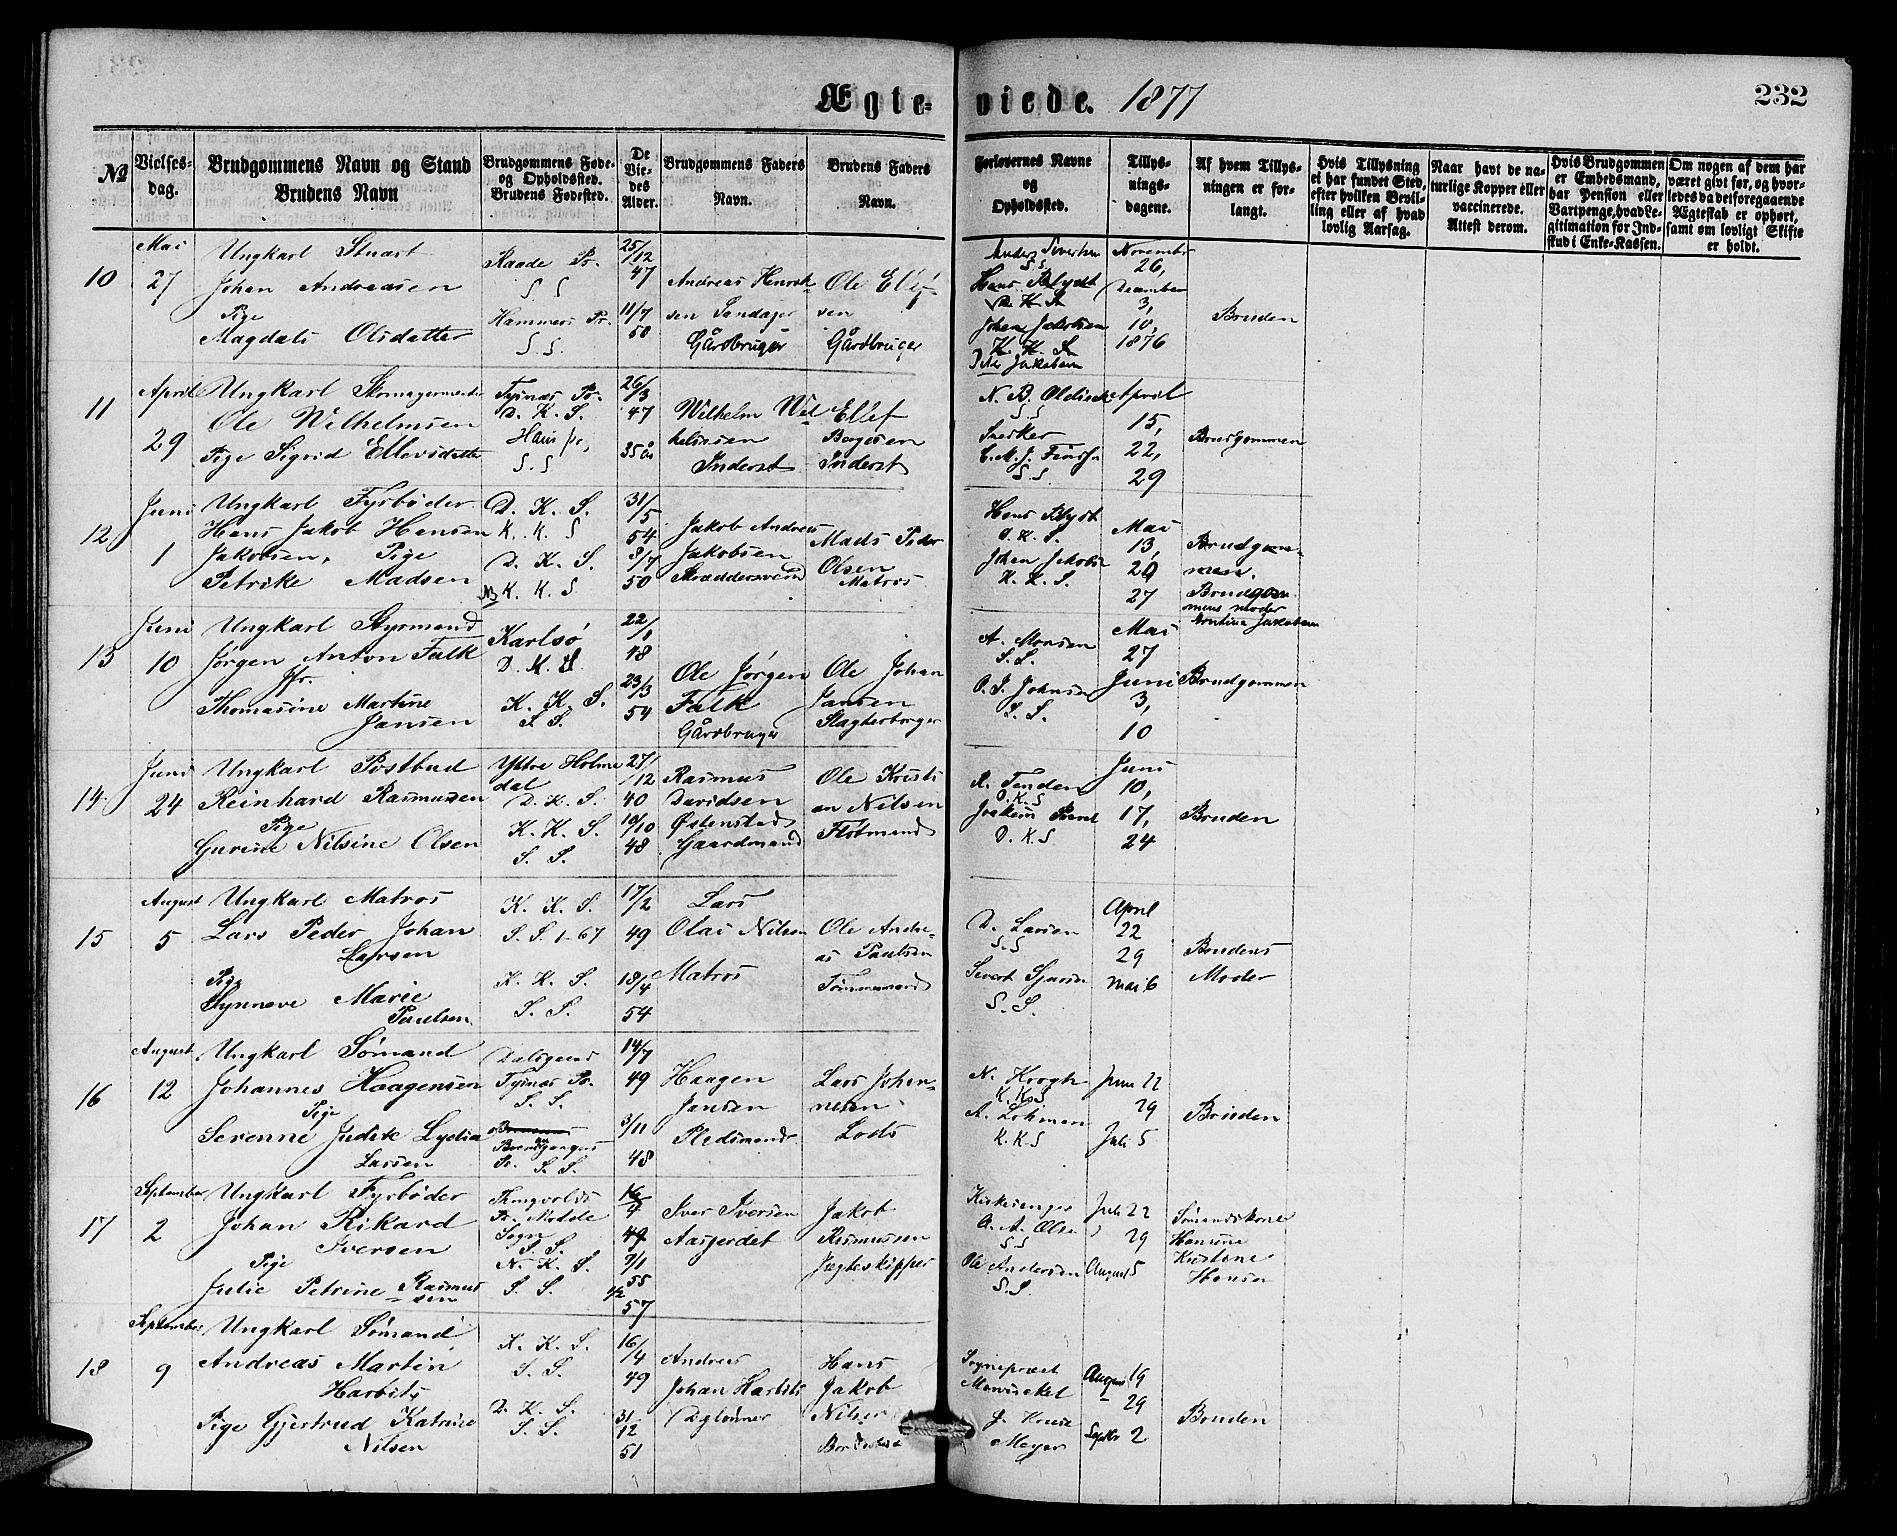 Ægte- viede. 1877
232
№
Vielses-
dag.
Brudgommens Navn og Stand
Brudens Navn
Brudgommens Føde-
og Opholdssted.
Brudens Fødested.
De
Vie-
des
Alder.
Brudgommens Faders
Navn.
Brudens Faders
og
Navn.
Forlovernes Navne
og
Opholdssted.
Tillys-
nings-
dagene.
Af hvem Tillys-
ningen er for-
langt.
Hvis Tillysning
ei har fundet Sted,
efter hvilken Bevil-
ling eller af hvad
lovlig Aarsag.
Naar havt de na-
turlige Kopper eller
vaccinerede.
Attest derom.
Hvis Brudgommen
er Embedsmand,
har Pension eller
Vartpenge, hvad Le-
gitimation for Ind-
skud i Enke-Kassen.
Om nogen af dem har
været givt før, og hvor-
ledes da det foregaaende
Ægteskab er ophørt,
samt om lovligt Skifte
er holdt.
10
Mai
27
Ungkarl Stuart
Johan Andreasen
Pige
Magdali Olsdatter
Raade Pr.
S. S
Hammers Pr.
S. S.
25/12
47
11/7
58
Andreas Henrik-
sen Sandager
Gårdbruger
Ole Ellef-
sen
Gårdbruger
Hans Blydt
D. K. S
Johan Jakobsen
K. K. S
November
26,
December
3,
10,
1876
Bruden
11
April
29
Ungkarl Skomagermester
Ole Wilhelmsen
Pige Sigrid Ellevsdatter
Tysnæs Pr.
D. K. S.
Haus Pr,
S. S
26/3
47
35 år
Wilhelm Wil
helmsen
Inderst
Ellef
Inderst
S S
S S
April
15,
22,
29
Brudgommen
12
Juni
1
Ungkarl Fyrbøder
Hans Jakob Hansen
Jakobsen, Pige
Petrike Madsen
D. K. S.
K. K. S
D. K. S.
K. K. S
31/5
54
3/7
50
Jakob Andreas
Jakobsen
Skræddersvend
Mads Peder
Olsen
Matros
Hans Blydt
D. K. S.
Johan Jakobsen
K. K. S.
Mai
13,
20
27
Brudgom-
men.
Brudgom-
mens moder
13
Juni
10
Ungkarl Styrmand
Jørgen Anton Falk
Jfr.
Thomasine Martine
Jansen
Karlsø
K. K. S.
S. S.
22/1
48
23/3
54
Ole Jørgen
Falk
Gårdbruger
Ole Johan
Jansen
Slagterborger
A. Monsen
S. S.
O. J. Johnsen
S. S.
Mai
27
Juni
3,
10
Brudgommen
14
Juni
24
Ungkarl Postbud
Reinhard Rasmussen
Pige
Gurine Nilsine Olsen
Yttre Holme
dal
D. K. S.
K. K. S.
S. S.
27/12
40
10/10
48
Rasmus
Davidsen
Østenstad
Gaardmand
Ole Kristi
an Nilsen
Flotmand
D. K. S
D. K. S
Juni
10,
17,
24
Bruden
15
August
5
Ungkarl Matros
Lars Peder Johan
Larsen
Pige
Synneve Marie
Paulsen
K. K. S.
S. S. 1-67
K. K. S.
S. S.
17/2
49
18/4
54
Lars
Olai Nilsen
Matros
Ole Andre-
as Paulsen
Tømmermand
D. Larsen
S. S
S. S.
April
22
29
mai 6
Brudens
Moder
16
August
12
Ungkarl Sømand
Johannes Haagensen
Pige
Serenne Judik Lydia
Larsen
Tysnæs Pr.
S. S.
Pr. S. S.
14/7
49
3/11
48
Haagen
Jansen
Pladsmand
Lars Johan-
nesen
Lods
N. Krogh
K. K. S
A. Lohman
K. K. S
Juni 22
29
Juli 5
Bruden
17
September
2
Ungkarl Fyrbøder
Johan Rikard
Iversen
Pige
Julie Petrine Rasmus
sen
Sogn
S. S.
N. K. S.
S. S.
49
9/1
55
1/2
57
Iver Iversen
Aasjerdet
Jakob
Rasmussen
Jægteskipper
Kirkesanger
A. A. Olsen
S S
Ole Andersen
S. S.
Juli 22
29
August 5
Sømandskone
Hansine
Kristine
Hansen
18
September
9
Ungkarl Sømand
Andreas Martin
Harbits
Pige Gjertrud Katrine
Nilsen
K. K. S.
S. S.
D. K. S.
S. S.
16/4
49
31/12
51
Andreas
Johan Harbits
Dagløner
Hans
Jakob
Nilsen
Sognepræst
J. Knud
Meyer
August 19
29
Septbr 2
Bruden